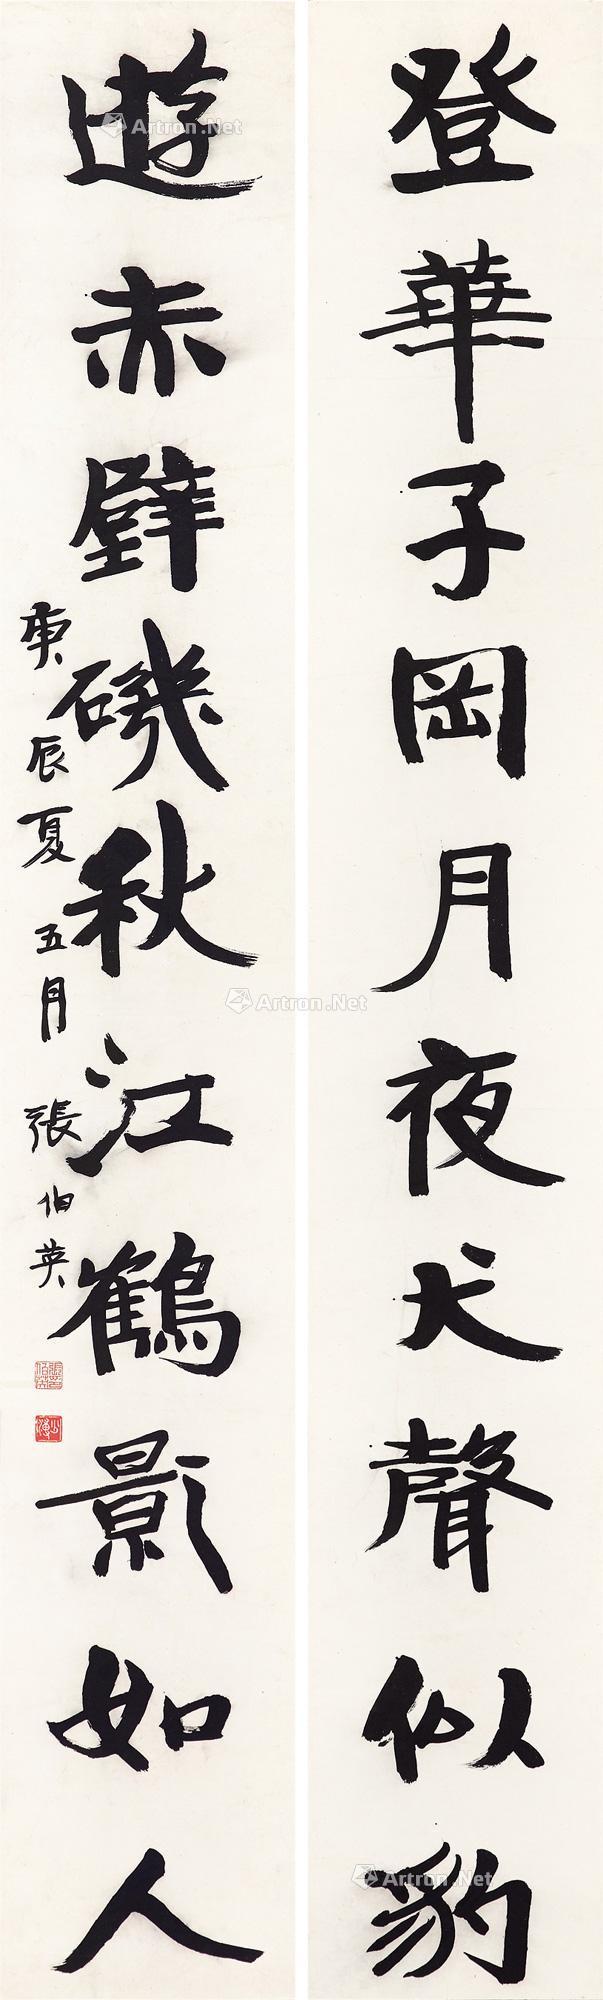 登華子岡月夜犬聲似豹
遊赤壁磯秋江鶴影如人
庚辰夏五月 張伯英
張伯英
Artron.Net
Artron.Net
Artron.Net